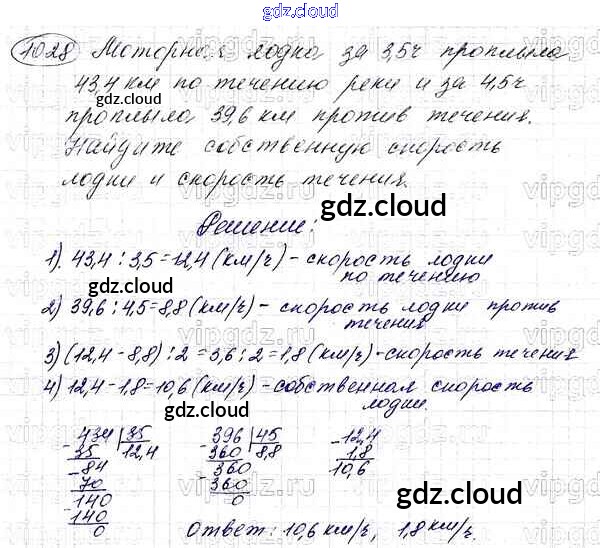 gdz.cloud
1028 Моторная лодка за 3,5ч проплыла
43,4 км по течению реки и за 4,5ч
gdz.cloud
проплыла 39,6 км против течения.
Найдите собственную скорость
лодки и скорость течения.
gdz.cloud
Решение:
1). 43,4 : 3,5 = 12,4 (км/ч) - скорость лодки
по течению
gdz.cloud
2) 39,6 : 4,5 = 8,8 (км/ч) - скорость лодки против
течения
3) (12,4 - 8,8) : 2 = 3,6 : 2 = 1,8 (км/ч) - скорость течения
4) 12,4 - 1,8 = 10,6 (км/ч) - собственная скорость
gdz.cloud
лодки.
434 35 396 45 12,4
- 35 12,4 - 360 8,8 - 1,8
- 84 360 10,6
70 - 360
140 0
- 140
0
gdz.cloud
gdz.cloud
Ответ: 10,6 км/ч, 1,8 км/ч.
vipgdz